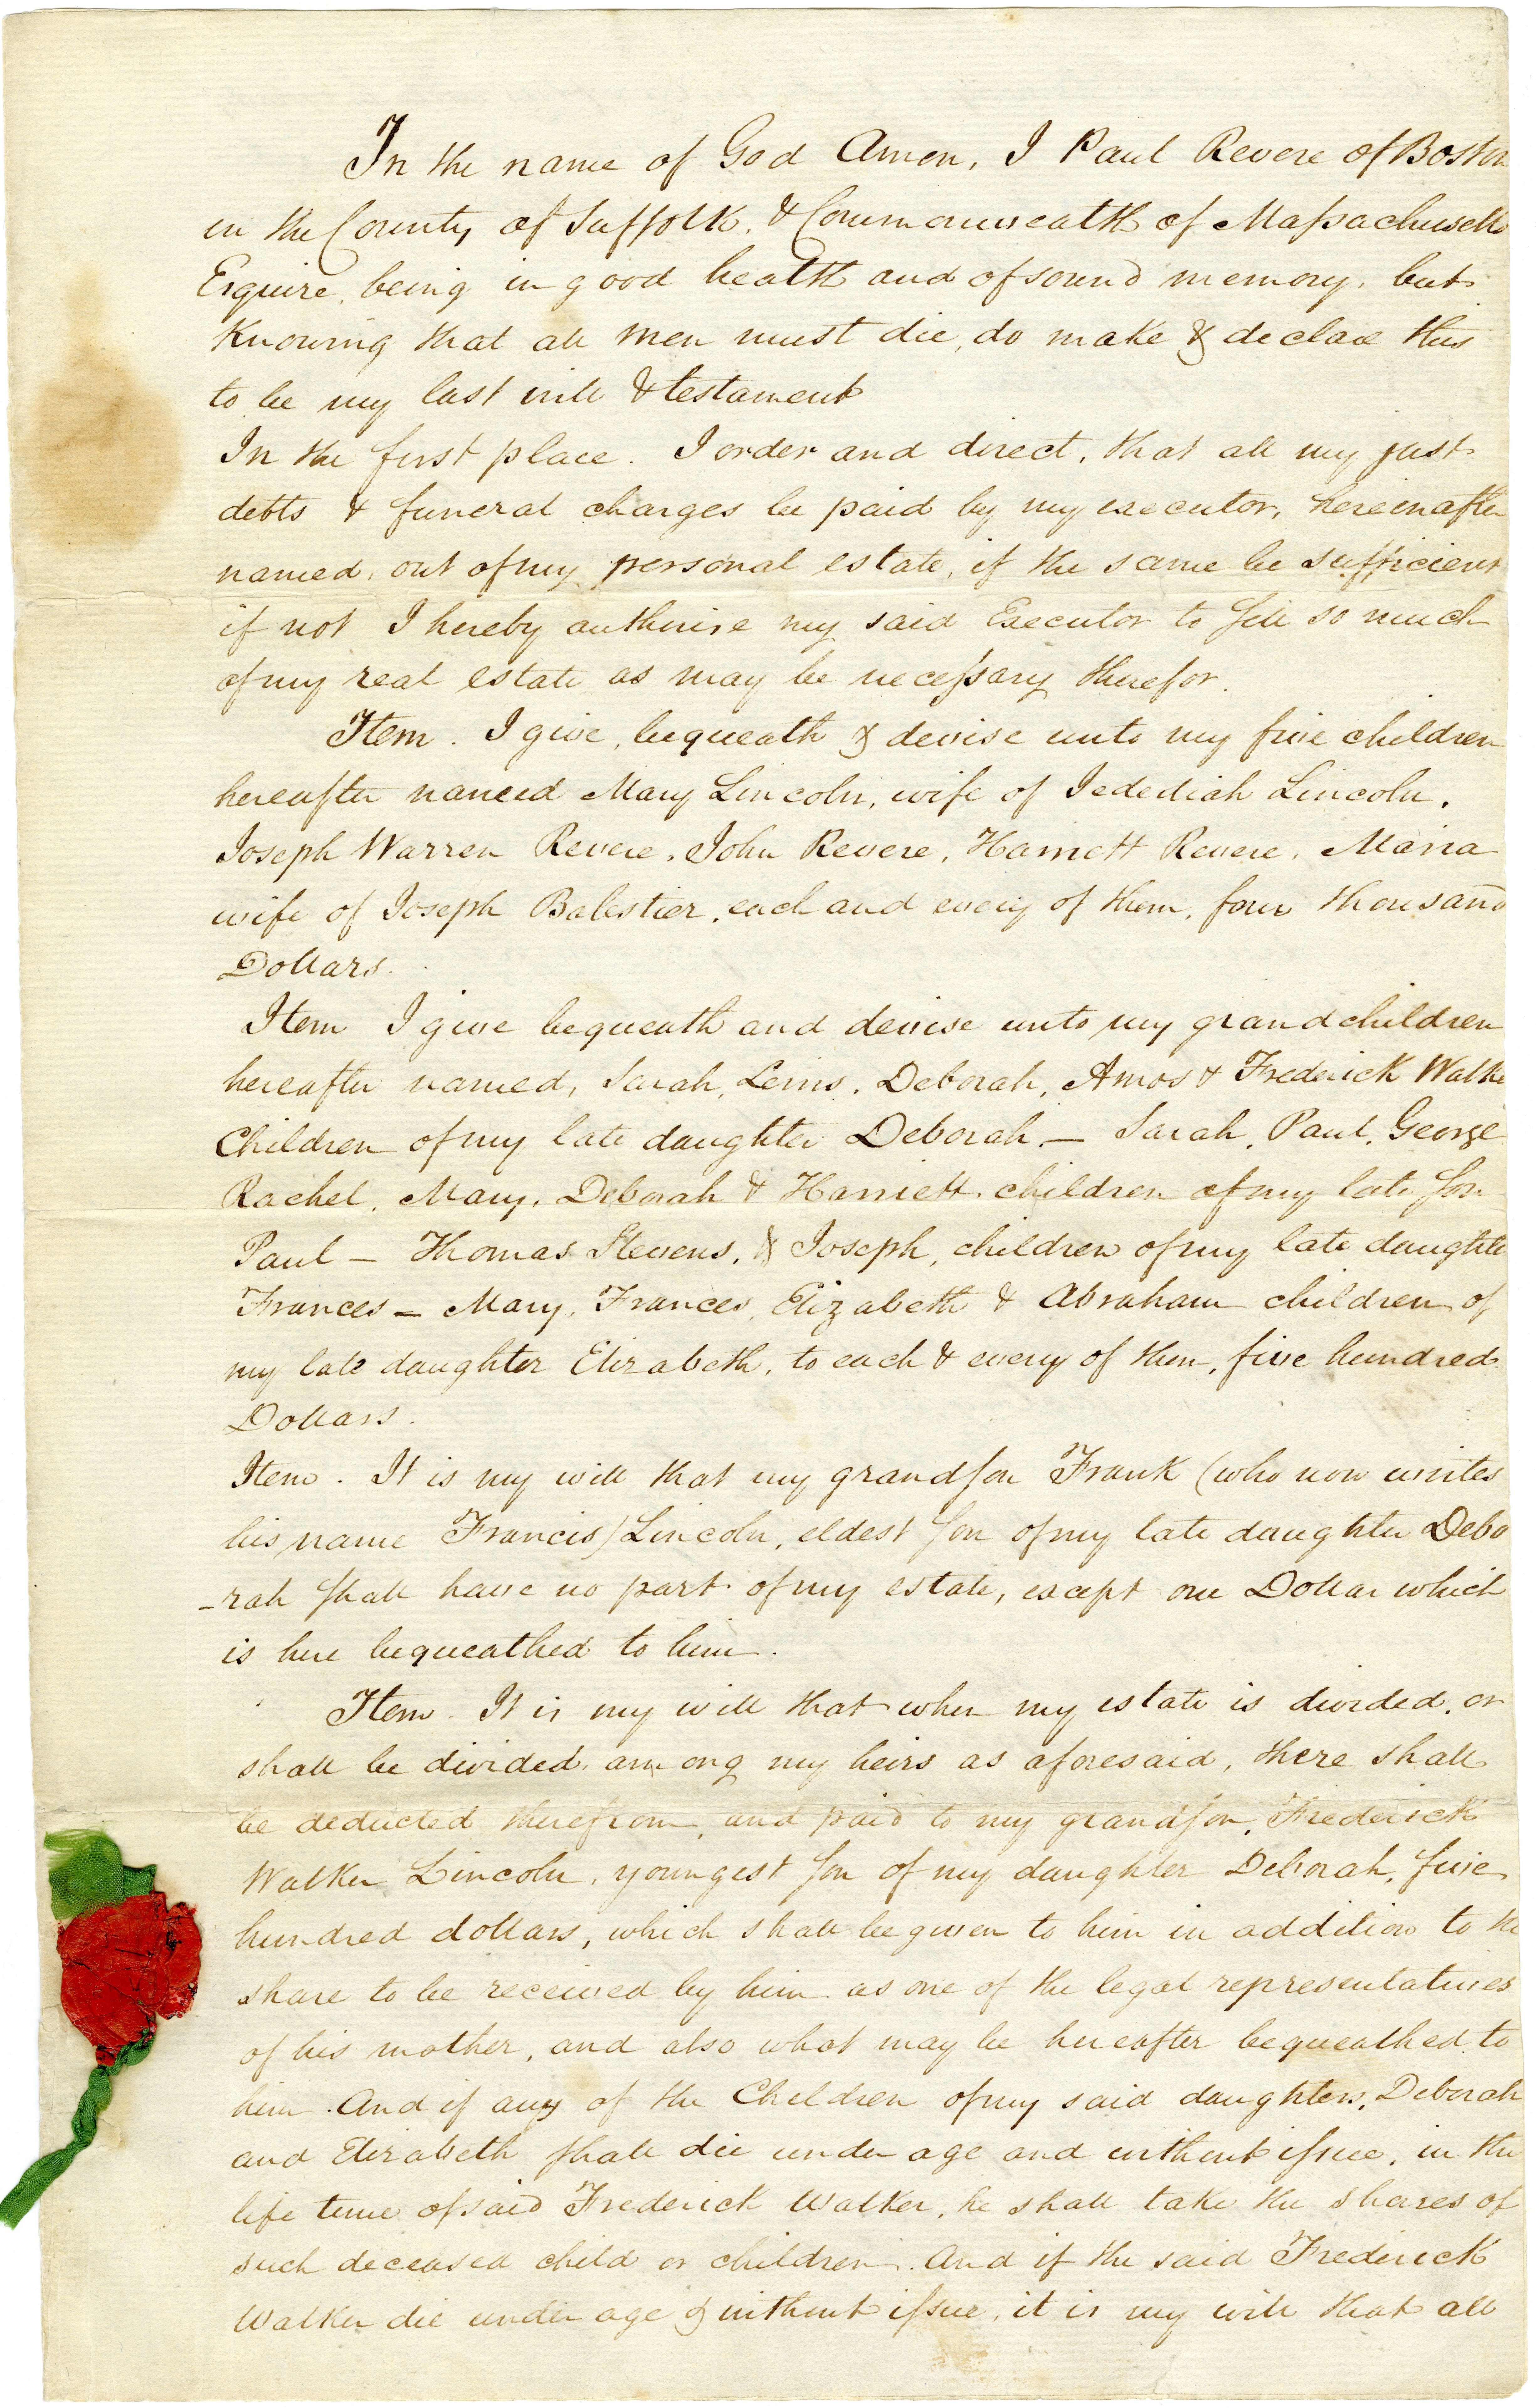 In the name of God Amen, I Paul Revere of Boston
in the County of Suffolk, & Commonwealth of Massachusetts
Esquire, being in good health and of sound memory, but
Knowing that all men must die, do make & declare this
to be my last will & testament
In the first place. I order and direct, that all my just
debts & funeral charges be paid by my executor, hereinafter
named, out of my personal estate, if the same be sufficient
if not I hereby authorise my said Executor to sell so much
of my real estate as may be necessary therefor.
Item. I give, bequeath & devise unto my five children
hereafter named Mary Lincoln, wife of Jedediah Lincoln,
Joseph Warren Revere, John Revere, Harriett Revere, Maria
wife of Joseph Balestier, each and every of them, four thousand
Dollars.
Item I give bequeath and devise unto my grandchildren
hereafter named, Sarah, Lewis, Deborah, Amos & Frederick Walke
Children of my late daughter Deborah — Sarah, Paul, George
Rachel, Mary, Deborah & Harriett children of my late son
Paul — Thomas Stevens, & Joseph, children of my late daughter
Frances — Mary, Frances, Elizabeth & Abraham children of
my late daughter Elizabeth, to each & every of them, five hundred
Dollars.
Item. It is my will that my grandson Frank (who now writes
his name Francis) Lincoln, eldest son of my late daughter Debo
-rah shall have no part of my estate, except one Dollar which
is here bequeathed to him.
Item. It is my will that when my estate is divided, or
shall be divided among my heirs as aforesaid, there shall
be deducted therefrom, and paid to my grandson, Frederick
Walker Lincoln, youngest son of my daughter Deborah, five
hundred dollars, which shall be given to him in addition to the
share to be received by him as one of the legal representatives
of his mother, and also what may be hereafter bequeathed to
him. And if any of the Children of my said daughters, Deborah
and Elizabeth shall die under age and without issue, in the
life time of said Frederick Walker, he shall take the shares of
such deceased child or children. And if the said Frederick
Walker die under age & without issue, it is my will that all